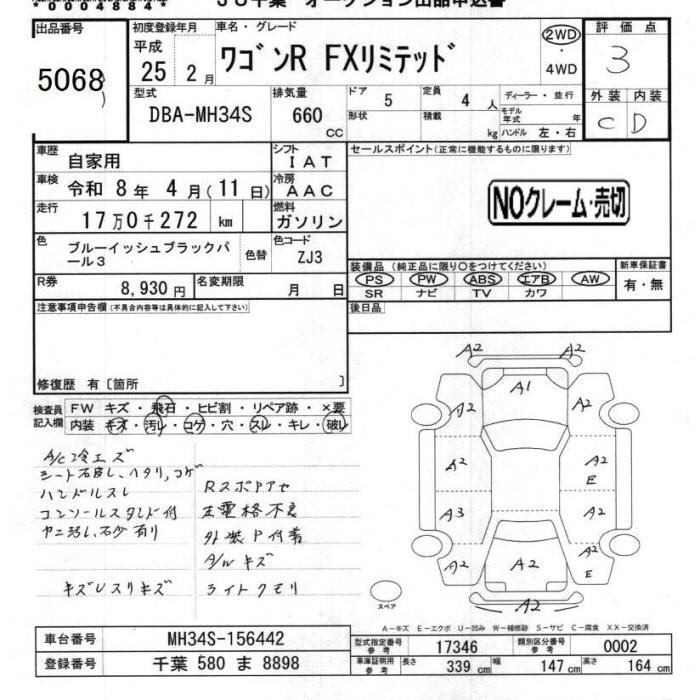 *00048844*
JU千葉 オークション出品申込書
出品番号
5068
初度登録年月
平成
25 2月
車名・グレード
ワゴンR FXリミテッド
2WD
・
4WD
評価点
3
外装 内装
C D
型式
DBA-MH34S
排気量
660
cc
ドア
5
形状
定員
4 人
積載
kg
ディーラー・並行
モデル年式 年
ハンドル 左・右
車歴
自家用
シフト
IAT
車検
令和 8年 4月(11日)
冷房
AAC
走行
17万0千272 km
燃料
ガソリン
色
ブルーイッシュブラックパール3
色替
色コード
ZJ3
R券
8,930円
名変期限
月 日
セールスポイント(正常に機能するものに限ります)
NOクレーム・売切
装備品(純正品に限り○をつけてください)
PS PW ABS エアB AW
SR ナビ TV カワ
新車保証書
有・無
後日品
注意事項申告欄(不具合内容等は具体的に記入して下さい)
修復歴 有〔箇所 〕
検査員記入欄
FW キズ・飛石・ヒビ割・リペア跡・×要
内装 キズ・汚レ・コゲ・穴・スレ・キレ・破レ
A/C冷エズ
ハンドルスレ
コンソールスタンド付
外装P付着
A/Wキズ
ライトクモリ
A2 A2
A1
A2 A2
A2 A2
E
A3 A2
A2 A2 A2
E
A2
スペア
A-キズ E-エクボ U-凹み W-補修跡 S-サビ C-腐食 XX-交換済
車台番号
MH34S-156442
登録番号
千葉 580 ま 8898
型式指定番号
参考
17346
類別区分番号
参考
0002
車庫証明用
参考
長さ
339 cm
幅
147 cm
高さ
164 cm